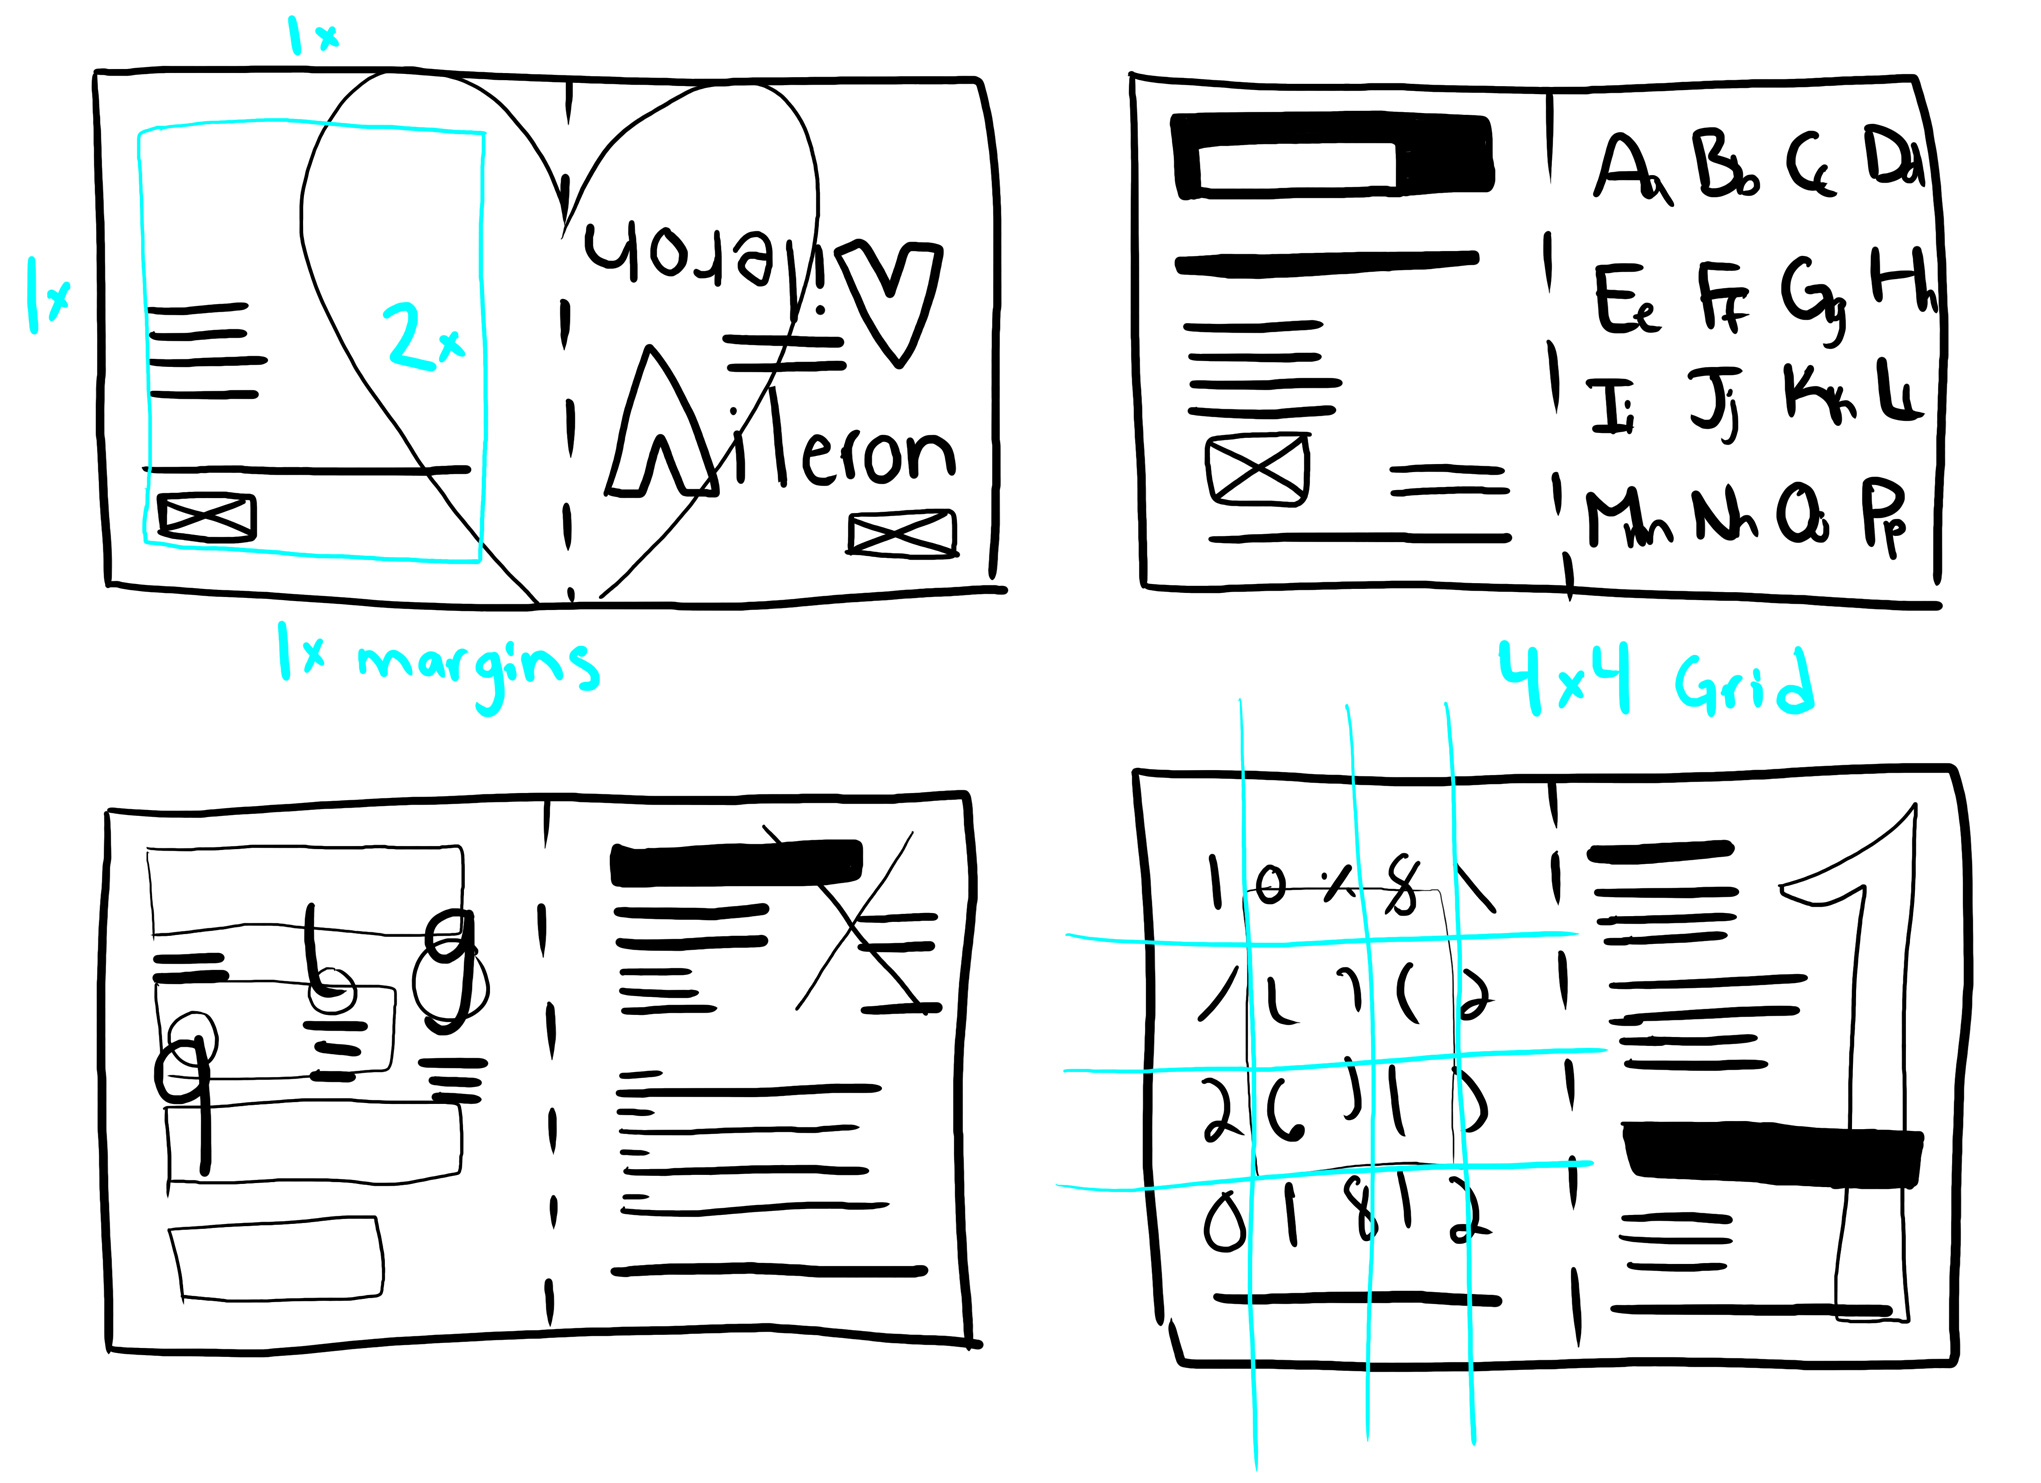 1x
1x
2x
Aileron
Aileron
1x margins
Aa Bb Cc Dd
Ee Ff Gg Hh
Ii Jj Kk Ll
Mm Nn Oo Pp
4x4 Grid
g
q
1 0 8
2
2 6
0 1 8 1 2
1